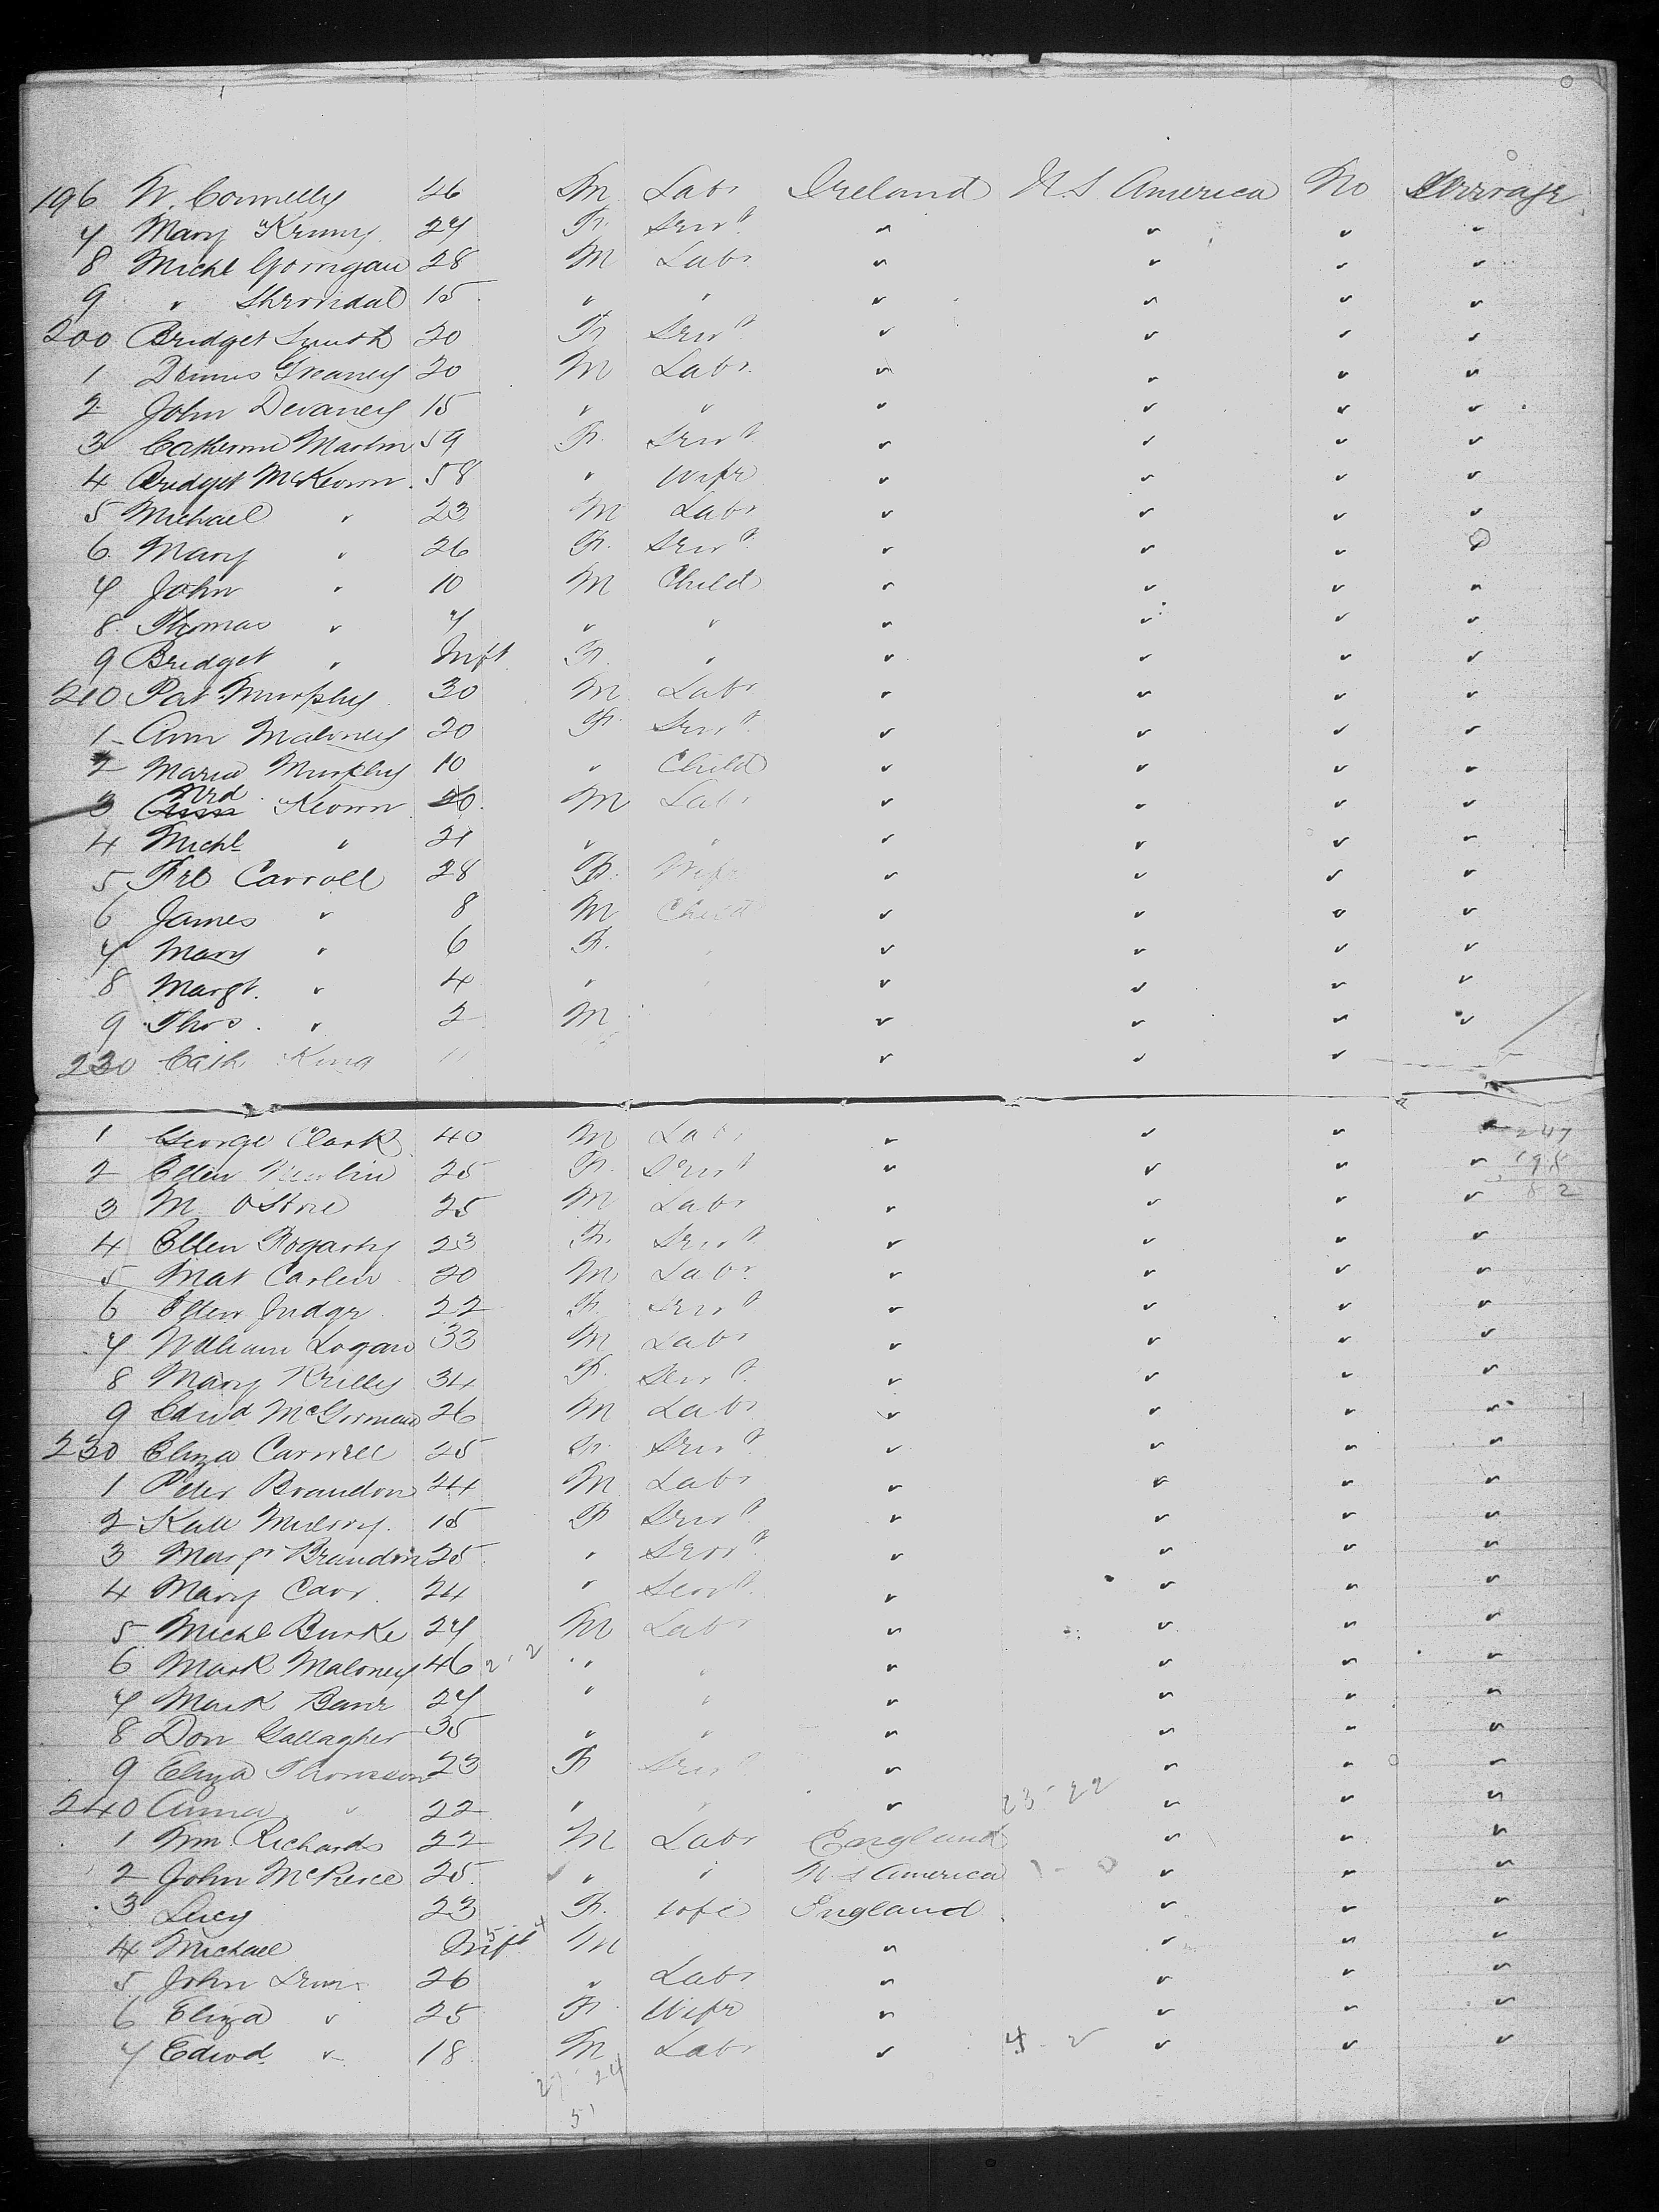 196 W. Connelly 46 M Labr Ireland U.S. America No Steerage
7 Mary Kenny 27 F. Servt " " " "
8 Michl Gorrigan 28 M Labr " " " "
9 " 15 " " " " " "
200 Bridget Smith 20 F. Servt " " " "
1 Dennis Greaney 20 M Labr " " " "
2 John Devaney 15 " " " " " "
3 Catherine Martin 59 F. Servt " " " "
4 Bridget McKeown 58 " Wife " " " "
5 Michael " 23 M Labr " " " "
6 Mary " 26 F. Servt " " " "
7 John " 10 M Child " " " "
8 Thomas " 7 " " " " " "
9 Bridget " Inft F. " " " " "
210 Pat Murphy 30 M Labr " " " "
1 Ann Maloney 20 F. Servt " " " "
2 Maria Murphy 10 " Child " " " "
3 Keown 20 M Labr " " " "
4 Michl " 21 " " " " " "
5 Carroll 28 F. Wife " " " "
6 James " 8 M Child " " " "
7 Mary " 6 F. " " " " "
8 Margt. " 4 " " " " " "
9 Thos. " 2 M " " " "
220 Cath King 11 " " "
1 George Clark 40 M Labr " " " " 247
2 Ellen 25 F. Servt " " " " 195
3 M. 25 M Labr " " " " 52
4 Ellen Fogarty 23 F. Servt " " " "
5 Mat Carlin 20 M Labr " " " "
6 Ellen Judge 22 F. Servt " " " "
7 William Logan 33 M Labr " " " "
8 Mary Krilly 34 F. Servt " " " "
9 Edwd McGorman 26 M Labr " " " "
230 Eliza Carwell 25 F. Servt " " " "
1 Peter Brandon 24 M Labr " " " "
2 Kate Mulvry 15 F Servt " " " "
3 Margt Brandon 25 " Servt " " " "
4 Mary Carr 24 " Servt " " " "
5 Michl Burke 27 M Labr " " " "
6 Mark Maloney 46 2-2 " " " " " "
7 Mark Bane 27 " " " " " "
8 Don Gallagher 35 " " " " " "
9 Eliza Thomson 23 F Servt " " " "
240 Anna " 22 " " " 23-22 " " "
1 Wm. Richards 22 M Labr England " " "
2 John McPierce 25 " " U S America 1-0 " " "
3 Lucy 23 F. wife England " " "
4 Michael Inft M " " " "
5 John 26 " Labr " " " "
6 Eliza " 25 F. Wife " " " "
7 Edwd. " 18 M Labr " 4-2 " " "
27-24
51